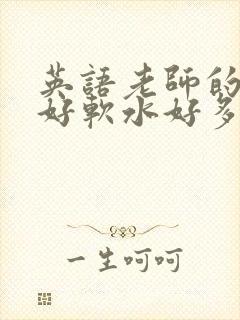 英語老師的
好軟水好多
一生呵呵